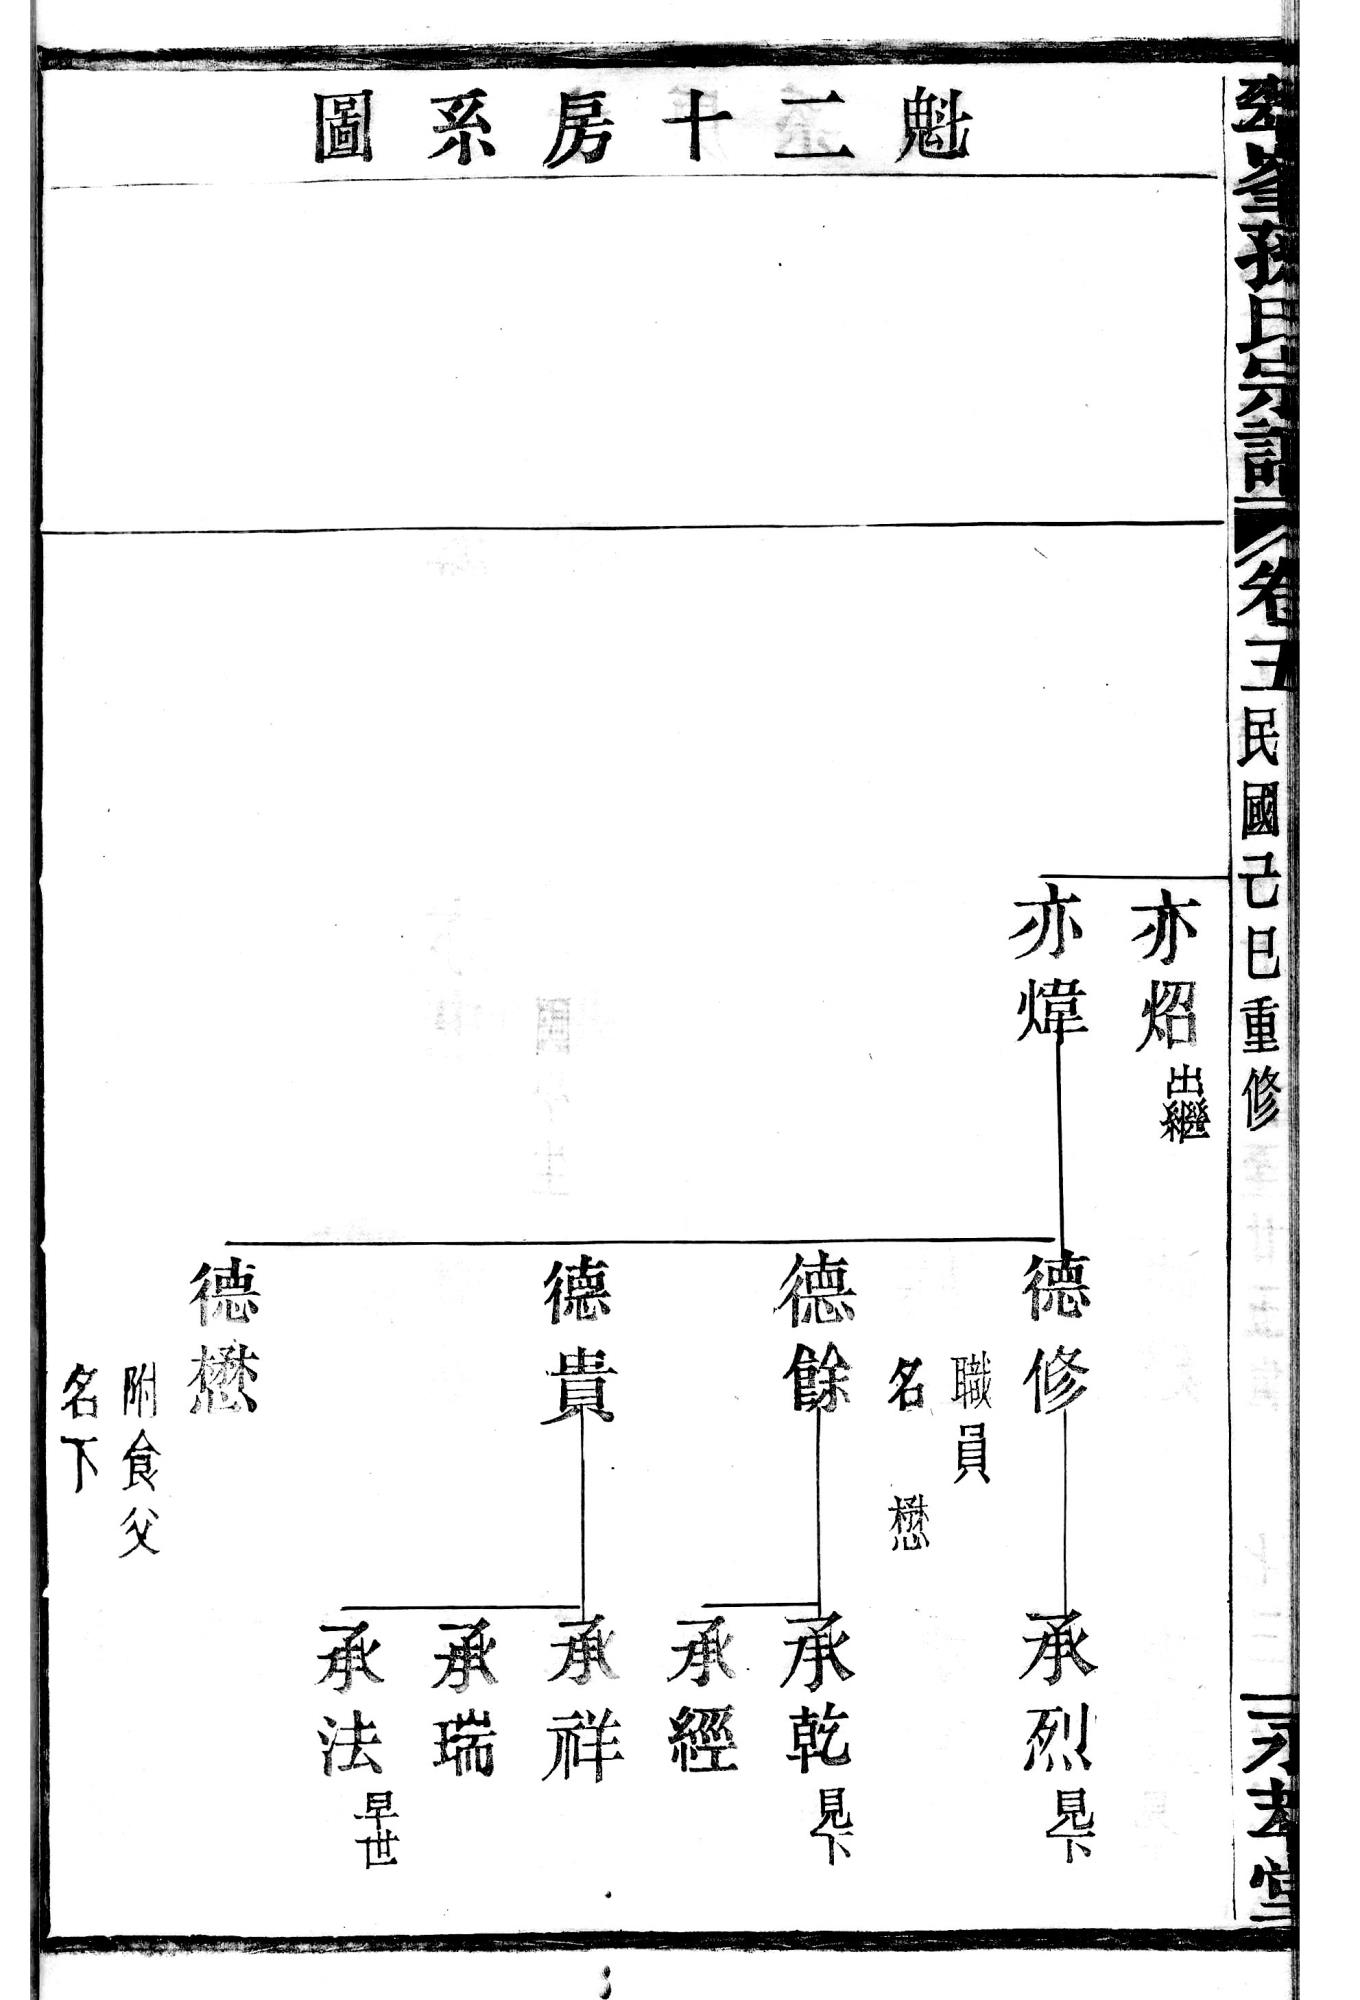 魁二十房系圖
孫氏宗譜
卷五
民國己巳重修
堂
亦炤
出繼
亦煒
德修
職員
名 懋
德餘
德貴
德懋
附食父
名下
承烈
見下
承乾
見下
承經
承祥
承瑞
承法
早世